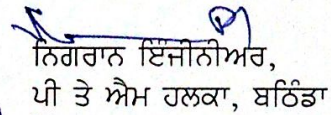 ਨਿਗਰਾਨ ਇੰਜੀਨੀਅਰ,
ਪੀ ਤੇ ਐਮ ਹਲਕਾ, ਬਠਿੰਡਾ